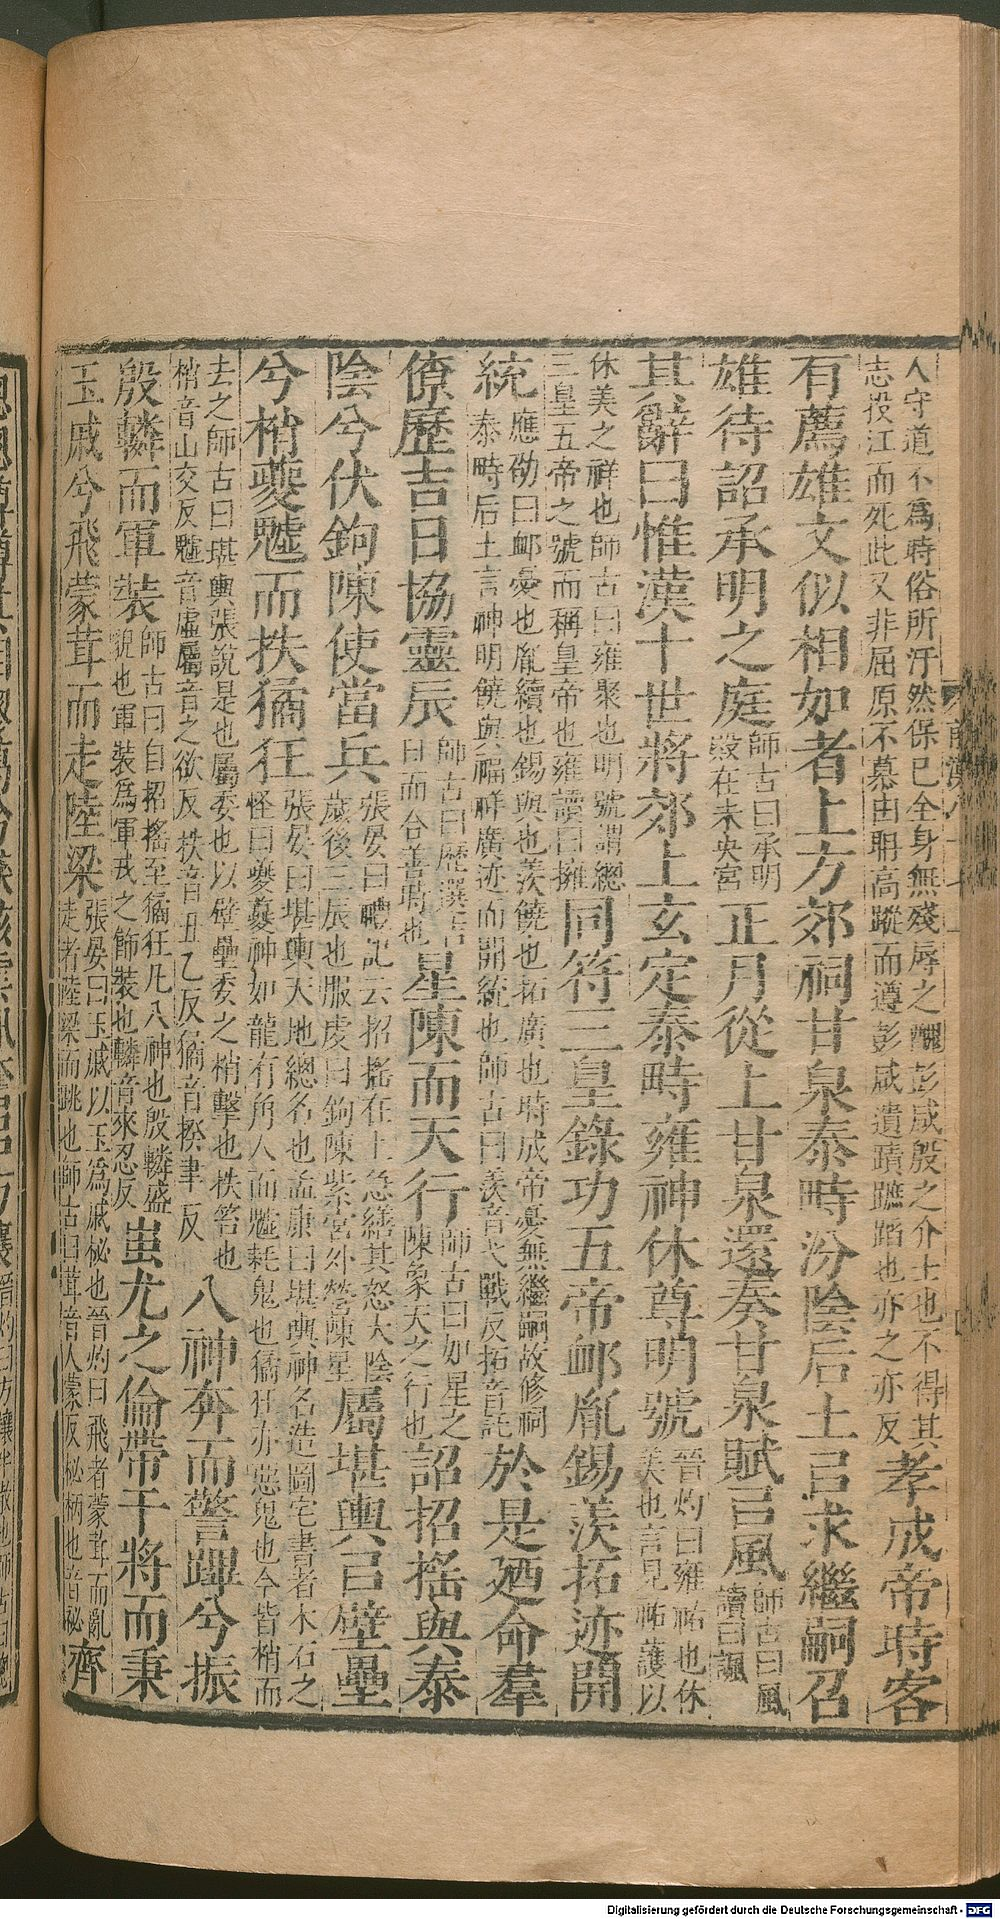 人守道不爲時俗所汙然保已全身無殘辱之醜彭咸殷之介士也不得其
志投江而死此又非屈原不慕由聃高蹤而遵彭咸遺蹟蹠蹈也亦之亦反
孝成帝時客
有薦雄文似相如者上方郊祠甘泉泰畤汾陰后土㠯求繼嗣召
雄待詔承明之庭
師古曰承明
殿在未央宫
正月從上甘泉還奏甘泉賦㠯風
師古曰風
讀曰諷
其辭曰惟漢十世將郊上玄定泰畤雍神休尊明號
晉灼曰雍祐也休
美也言見祐護以
休美之祥也師古曰雍聚也明號謂總
三皇五帝之號而稱皇帝也雍讀曰擁
同符三皇錄功五帝卹胤錫羨拓迹開
統
應劭曰卹憂也胤續也錫與也羨饒也拓廣也時成帝憂無繼嗣故修祠
泰畤后土言神明饒與福祥廣迹而開統也師古曰羨音弋戰反拓音託
於是廼命羣
僚歷吉日協靈辰
師古曰歷選吉
日而合善時也
星陳而天行
師古曰如星之
陳象天之行也
詔招搖與泰
陰兮伏鉤陳使當兵
張晏曰禮記云招搖在上急繕其怒太陰
歲後三辰也服虔曰鉤陳紫宫外營陳星
屬堪輿㠯壁壘
兮梢夔魖而抶獝狂
張晏曰堪輿天地總名也孟康曰堪輿神名造圖宅書者木石之
怪曰夔夔神如龍有角人面魖耗鬼也獝狂亦惡鬼也今皆梢而
去之師古曰堪輿張說是也屬委也以壁壘委之梢擊也抶笞也
梢音山交反魖音虛屬音之欲反抶音丑乙反獝音揆聿反
八神奔而警蹕兮振
殷轔而軍裝
師古曰自招搖至獝狂凡八神也殷轔盛
貌也軍裝爲軍戎之飾裝也轔音來忍反
蚩尤之倫帶干將而秉
玉戚兮飛蒙茸而走陸梁
張晏曰玉戚以玉爲戚柲也晉灼曰飛者蒙茸而亂
走者陸梁而跳也師古曰茸音人蒙反柲柄也音祕
齊
Digitalisierung gefördert durch die Deutsche Forschungsgemeinschaft - DFG